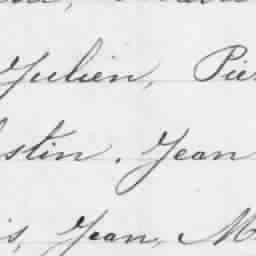 Julien, Pie
stin. Jean
is, Jean, M